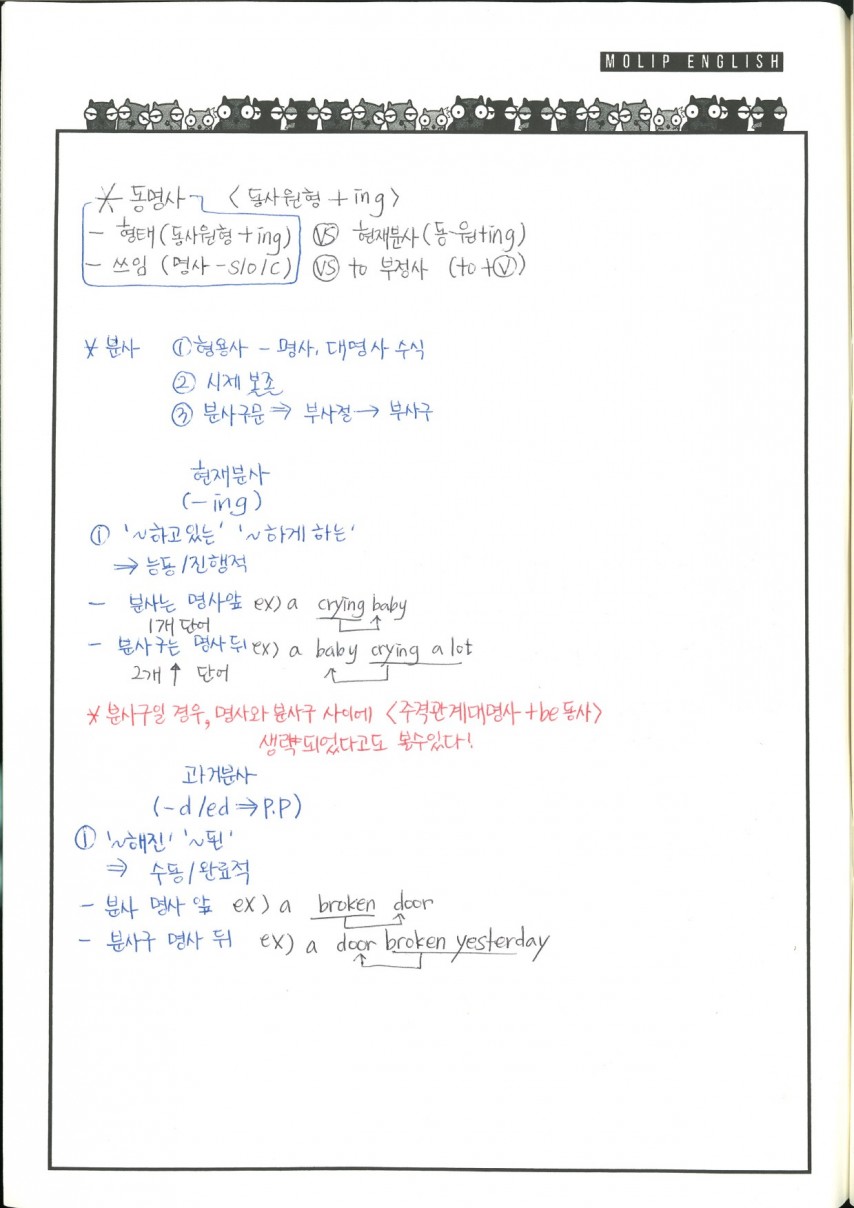 MOLIP ENGLISH
* 동명사 <동사원형 + ing>
- 형태 (동사원형 + ing) VS 현재분사 (동·원+ing)
- 쓰임 (명사 - S/O/C) VS to 부정사 (to + V)
* 분사 ① 형용사 - 명사, 대명사 수식
② 시제 보존
③ 분사구문 ⇒ 부사절 → 부사구
현재분사
(-ing)
① '~하고 있는' '~하게 하는'
⇒ 능동/진행적
- 분사는 명사앞 ex) a crying baby
1개 단어
- 분사구는 명사 뒤 ex) a baby crying a lot
2개 ↑ 단어
* 분사구일 경우, 명사와 분사구 사이에 <주격관계대명사 + be동사>
생략되었다고도 볼수있다!
과거분사
(-d/ed ⇒ P.P)
① '~해진' '~된'
⇒ 수동/완료적
- 분사 명사 앞 ex) a broken door
- 분사구 명사 뒤 ex) a door broken yesterday